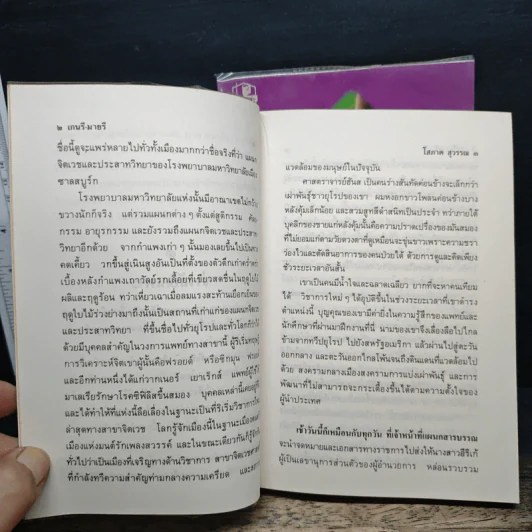 ๒ เกนรี-มายรี
ชื่อนี้ดูจะแพร่หลายไปทั่วทั้งเมืองมากกว่าชื่อจริงที่ว่า แผนก
จิตเวชและประสาทวิทยาของโรงพยาบาลมหาวิทยาลัยเมือง
ซาลสบูร์ก
โรงพยาบาลมหาวิทยาลัยแห่งนั้นมีอาณาเขตไม่กว้าง
ขวางนักก็จริง แต่รวมแผนกต่าง ๆ ตั้งแต่สูติกรรม ศัลย
กรรม อายุรกรรม และยังรวมถึงแผนกจิตเวชและประสาท
วิทยาอีกด้วย จากกำแพงเก่า ๆ นั้นมองเลยขึ้นไปเป็นทาง
คดเคี้ยว วกขึ้นสู่เนินสูงอันเป็นที่ตั้งของตัวตึกเก่าคร่ำคร่า
เบื้องหลังกำแพงเถาวัลย์รกเลื้อยที่เขียวสดชื่นในฤดูใบไม้
ผลิและฤดูร้อน ทว่าเหี่ยวเฉาเมื่อลมแรงสะท้านเยือกเย็นของ
ฤดูใบไม้ร่วงย่างมาถึงนั้นเป็นสถานที่เก่าแก่ของแผนกจิตเวช
และประสาทวิทยา ที่ขึ้นชื่อไปทั่วยุโรปและทั่วโลกก็ว่าได้
ด้วยมีบุคคลสำคัญในวงการแพทย์ทางสาขานี้ ผู้ริเริ่มทฤษฎี
การวิเคราะห์จิตเขาผู้นั้นคือฟรอยด์ หรือซิกมุน ฟรอยด์
และอีกท่านหนึ่งได้แก่วากเนอร์ เยาเร็กส์ แพทย์ผู้ใช้ไข้
มาเลเรียรักษาโรคซิฟิลิสขึ้นสมอง บุคคลเหล่านี้เคยอยู่ที่นี่
และได้ทำให้ที่แห่งนี้ลือเลื่องในฐานะเป็นที่ริเริ่มวิชาการใหม่
ล่าสุดทางสาขาจิตเวช โลกรู้จักเมืองนี้ในฐานะเมืองดนตรี
เมืองแห่งมนต์รักเพลงสวรรค์ และในขณะเดียวกันก็รู้จักกัน
ทั่วไปว่าเป็นเมืองที่เจริญทางด้านวิชาการ สาขาจิตเวชศาสตร์
ที่กำลังทวีความสำคัญท่ามกลางความเครียด และสภาพ
โสภาค สุวรรณ ๓
แวดล้อมของมนุษย์ในปัจจุบัน
ศาสตราจารย์ฮันส เป็นคนร่างสันทัดค่อนข้างจะเล็กกว่า
เผ่าพันธุ์ชาวยุโรปของเขา ผมหงอกขาวโพลนค่อนข้างบาง
หลังคุ้มเล็กน้อย และสวมสูทสีดำสนิทเป็นประจำ ทว่าภายใต้
บุคลิกของชายแก่หลังคุ้มนั้นคือความปราดเปรื่องของมันสมอง
ที่ไม่ยอมแก่ตามวัยดวงตาที่ดูเหมือนจะขุ่นขาวเพราะความชรา
ว่องไวและตัดสินอาการของคนป่วยได้ ด้วยการดูและคิดเพียง
ชั่วระยะเวลาอันสั้น
เขาเป็นคนมีน้ำใจและฉลาดเฉลียว ยากที่จะหาคนเทียม
ได้ วิชาการใหม่ ๆ ได้อุบัติขึ้นในช่วงระยะเวลาที่เขาดำรง
ตำแหน่งนี้ บุญคุณของเขามีค่ายิ่งในความรู้สึกของแพทย์และ
นักศึกษาที่ผ่านมาฝึกงานที่นี่ นามของเขาจึงเลื่องลือไปไกล
ข้ามจากทวีปยุโรป ไปยังสหรัฐอเมริกา แล้วผ่านไปสู่ตะวัน
ออกกลาง และตะวันออกไกลโพ้นจนถึงดินแดนที่แวดล้อมไป
ด้วย สงครามกลางเมืองสงครามการแบ่งเผ่าพันธุ์ และการ
พัฒนาที่ไม่สามารถจะกระเตื้องขึ้นได้ตามความตั้งใจของ
ผู้นำประเทศ
เช้าวันนี้ก็เหมือนกับทุกวัน ที่เจ้าหน้าที่แผนกสารบรรณ
จะนำจดหมายและเอกสารทางราชการไปส่งให้นางสาวอีริเก้
ผู้เป็นเลขานุการส่วนตัวของผู้อำนวยการ หล่อนรวบรวม